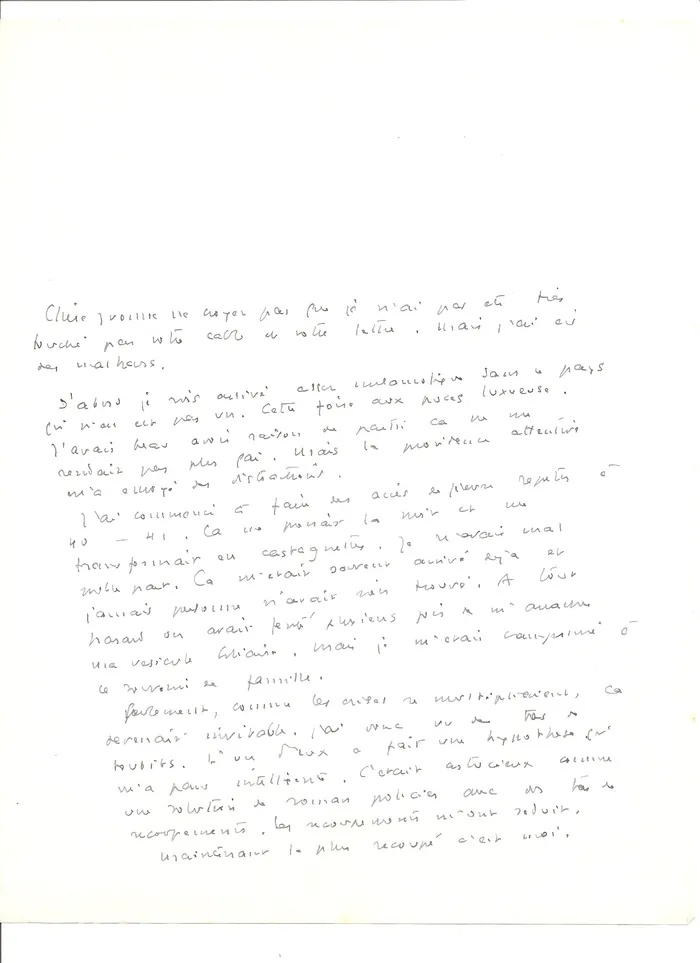 Chère Yvonne ne croyez pas que je n'ai pas été très
touché par votre cable et votre lettre. Mais j'ai eu
des malheurs.
D'abord je suis arrivé assez mélancolique dans ce pays
qui n'en est pas un. Cette foire aux puces luxueuse.
J'avais beau avoir raison de partir ça ne me
rendait pas plus gai. Mais la providence attentive
m'a envoyé des distractions.
J'ai commencé à faire des accès de fièvre repétés à
40 — 41. Ca me prenait la nuit et me
transformait en castagnettes. Je n'avais mal
nulle part. Ca m'était souvent arrivé déjà et
jamais personne n'avait rien trouvé. A tout
hasard on avait tenté plusieurs fois de m'arracher
ma vesicule biliaire. Mais je m'étais cramponné à
ce souvenir de famille.
Seulement, comme les crises se multipliaient, ça
devenait invivable. J'ai donc vu des tas de
toubibs. L'un d'eux a fait une hypothèse qui
m'a paru intelligente. C'était astucieux comme
une solution de roman policier avec des tas de
recoupements. Les recoupements m'ont séduit.
Maintenant le plus recoupé c'est moi.